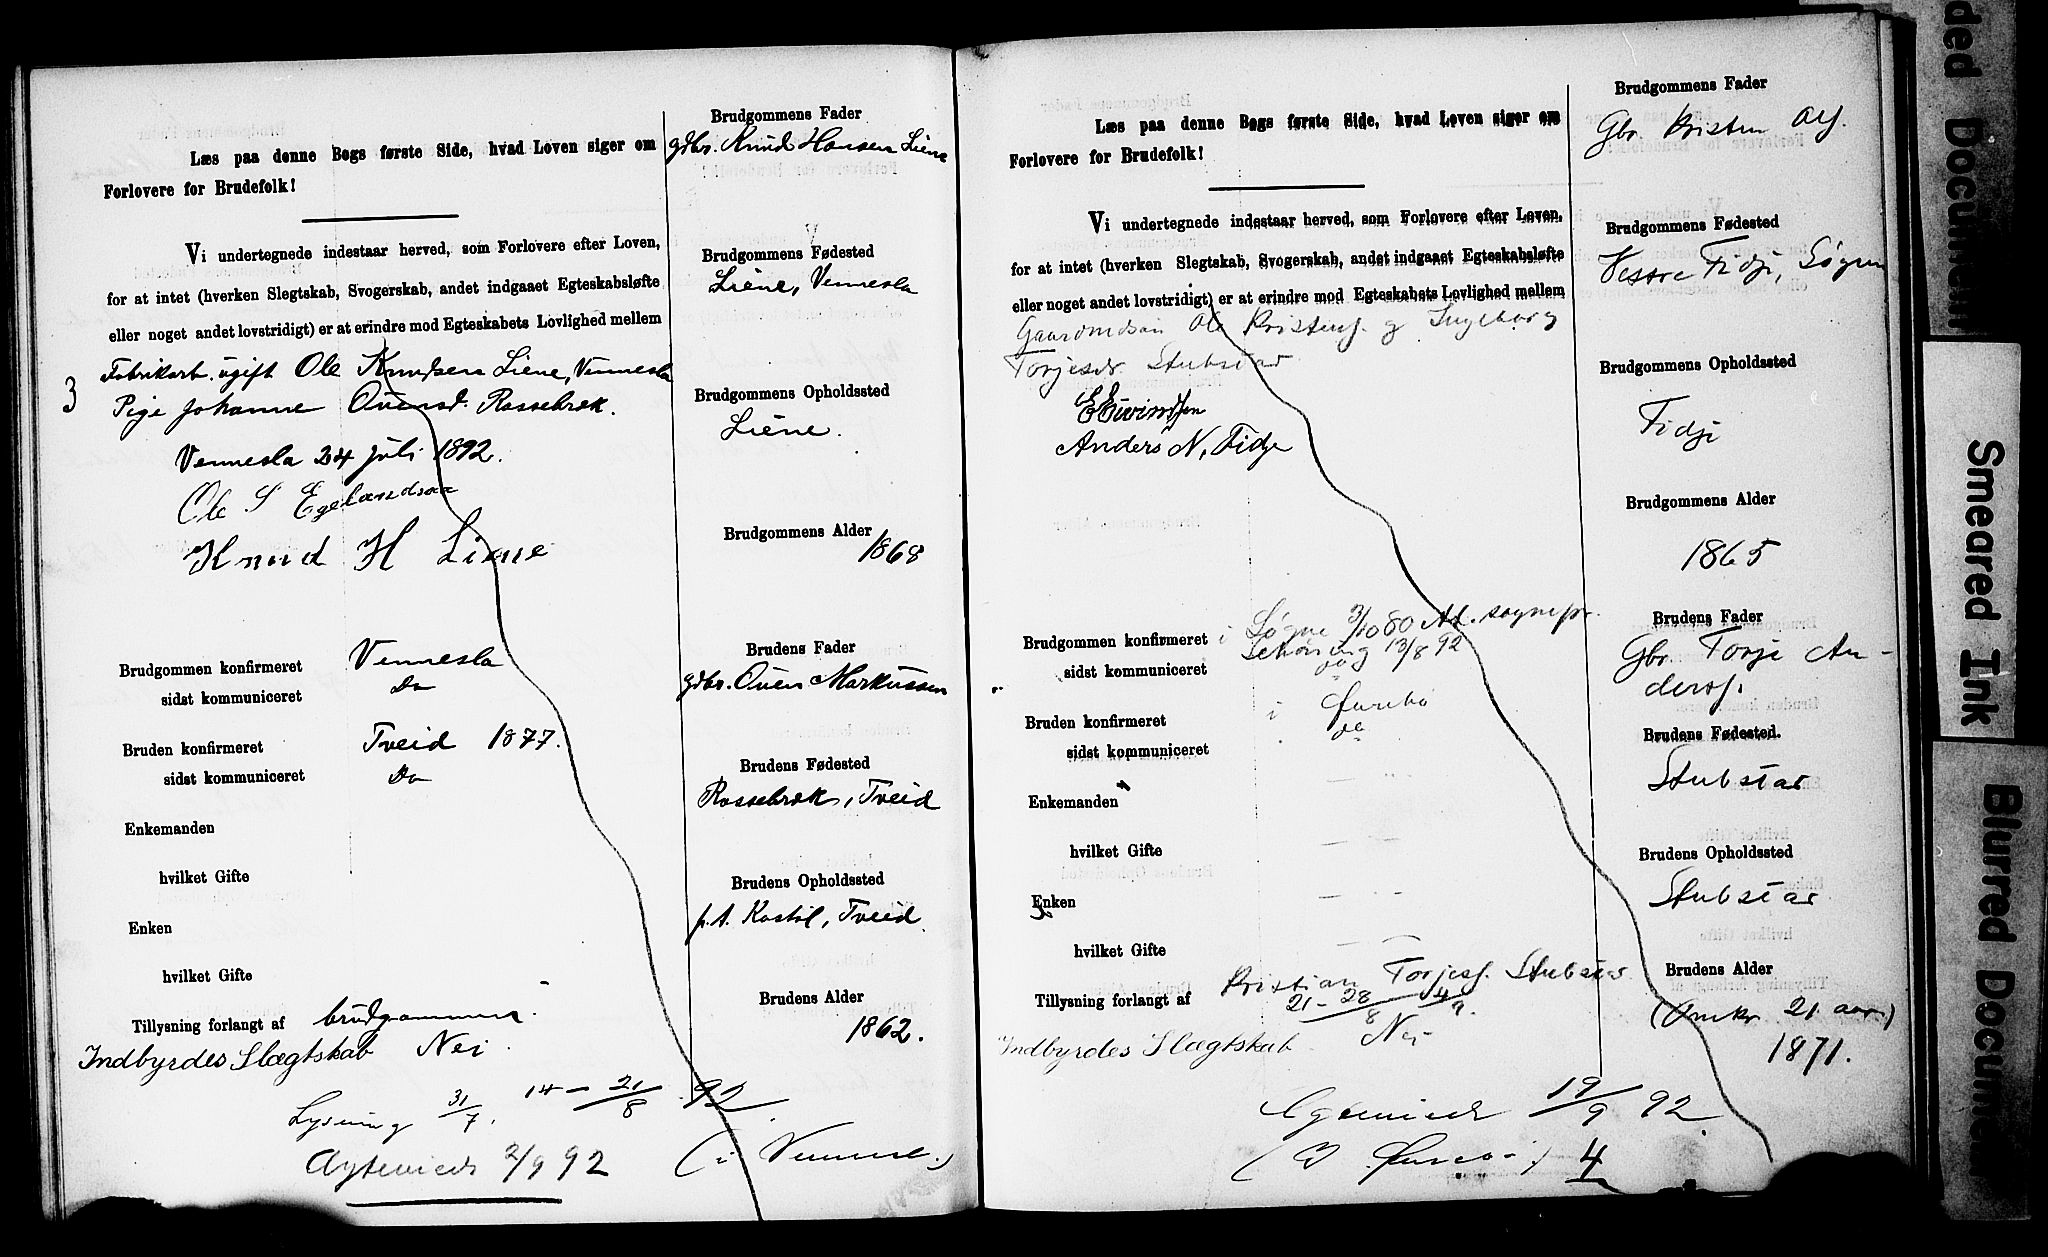 Læs paa denne Bogs første Side, hvad Loven siger om
Forlovere for Brudefolk!
Vi undertegnede indestaar herved, som Forlovere efter Loven,
for at intet (hverken Slegtskab, Svogerskab, andet indgaaet Egteskabsløfte
eller noget andet lovstridigt) er at erindre mod Egteskabets Lovlighed mellem
Fabrikarb. ugift Ole Knudsen Liene, Vennesla
3 Pige Johanne Ovensd. Rossebræk.
Vennesla 24 Juli 1892.
Ole S Egelandsaa
Knud H Liene
Brudgommen konfirmeret Vennesla
sidst kommuniceret Do
Bruden konfirmeret Tveid 1877.
sidst kommuniceret Do
Enkemanden
hvilket Gifte
Enken
hvilket Gifte
Tillysning forlangt af brudgommen.
Indbyrdes Slægtskab Nei.
Lysning 31/7. 14 - 21/8 92.
Ægtevieds 2/9 92 (i Vennesl.)
Brudgommens Fader
gdbr. Knud Hansen Liene
Brudgommens Fødested
Liene, Vennesla
Brudgommens Opholdssted
Liene.
Brudgommens Alder
1868
Brudens Fader
gdbr. Oven Markussen
Brudens Fødested
Rossebræk, Tveid
Brudens Opholdssted
p.t. Kostøl, Tveid.
Brudens Alder
1862.
Læs paa denne Bogs første Side, hvad Loven siger om
Forlovere for Brudefolk!
Vi undertegnede indestaar herved, som Forlovere efter Loven,
for at intet (hverken Slegtskab, Svogerskab, andet indgaaet Egteskabsløfte
eller noget andet lovstridigt) er at erindre mod Egteskabets Lovlighed mellem
Gaardmdsøn Ole Kristens. og Ingeborg
Torjesdr. Stubstar
E Eivindsen
Anders N. Fidje
Brudgommen konfirmeret i Søgne 3/10 80 Att. sognepr.
sidst kommuniceret do 13/8 92
Bruden konfirmeret i Øvrebø
sidst kommuniceret do
Enkemanden
hvilket Gifte
Enken
hvilket Gifte
Kristian Torjess. Stubstar
Tillysning forlangt af 21 - 28/8 4/9.
Indbyrdes Slægtskab. Nei
Ægtevieds 19/9 92.
(I Øvrebø) 4
Brudgommens Fader
Gbr. Kristen Ols.
Brudgommens Fødested
Vestre Fidje, Søgne
Brudgommens Opholdssted
Fidje
Brudgommens Alder
1865
Brudens Fader
Gbr. Torje An-
derss.
Brudens Fødested.
Stubstar
Brudens Opholdssted
Stubstar
Brudens Alder
(Omkr 21 aar)
1871.
ded Documen
Smeared Ink
Blurred Documen